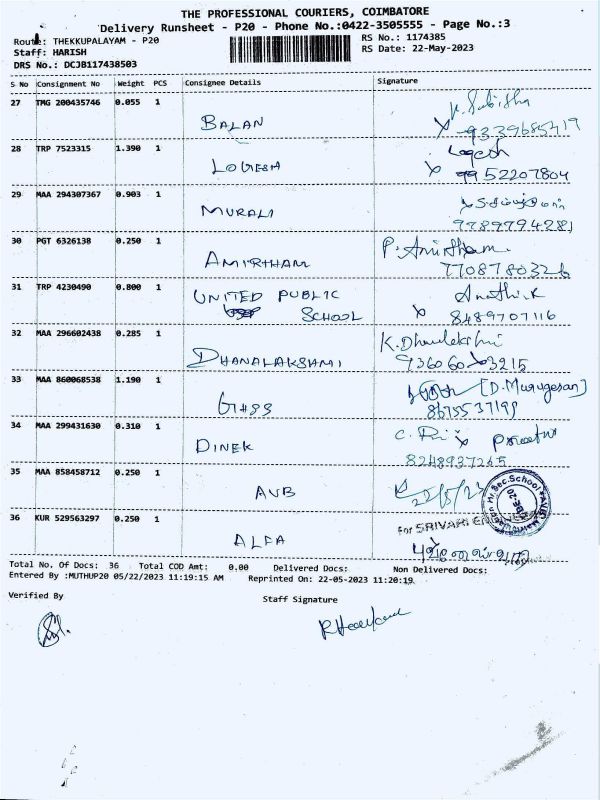 THE PROFESSIONAL COURIERS, COIMBATORE
Delivery Runsheet - P20 - Phone No.:0422-3505555 - Page No.:3
Route: THEKKUPALAYAM - P20
RS No.: 1174385
Staff: HARISH
RS Date: 22-May-2023
DRS No.: DCJB117438503
S No Consignment No Weight PCS Consignee Details Signature
27 TMG 200435746 0.055 1
BALAN
28 TRP 7523315 1.390 1 Logesh
LOGESH 99 52207804
29 MAA 294307367 0.903 1
MURALI 9789794281
30 PGT 6326138 0.250 1 P. Amirtham
AMIRTHAM 7708780326
31 TRP 4230490 0.800 1 UNITED PUBLIC
SCHOOL 8489707116
32 MAA 296602438 0.285 1 K. Dhanalakshmi
DHANALAKSHMI
33 MAA 860068538 1.190 1 [D. Murugesan]
GHSS
34 MAA 299431630 0.310 1
DINEK 8248937265
35 MAA 858458712 0.250 1
AVB 22/5/23
36 KUR 529563297 0.250 1 for SRIVARI
ALFA
Total No. Of Docs: 36 Total COD Amt: 0.00 Delivered Docs: Non Delivered Docs:
Entered By :MUTHUP20 05/22/2023 11:19:15 AM Reprinted On: 22-05-2023 11:20:19
Verified By
Staff Signature